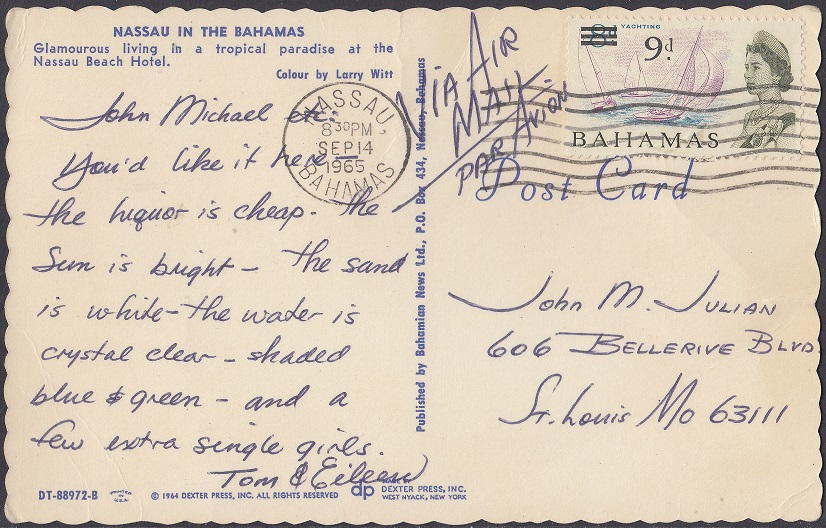 NASSAU IN THE BAHAMAS
Glamourous living in a tropical paradise at the
Nassau Beach Hotel.
Colour by Larry Witt
John Michael etc.
You'd like it here
the liquor is cheap. The
Sun is bright - the sand
is white - the water is
crystal clear - shaded
blue & green - and a
few extra single girls.
Tom & Eileen
DT-88972-B
PRINTED IN U.S.A.
© 1964 DEXTER PRESS, INC. ALL RIGHTS RESERVED
dp
DEXTER PRESS, INC.
WEST NYACK, NEW YORK
Published by Bahamian News Ltd., P.O. Box 434, Nassau, Bahamas
NASSAU
8 30 PM
SEP 14
1965
BAHAMAS
VIA AIR
MAIL
PAR AVION
8d
YACHTING
9d
BAHAMAS
Post Card
John M. Julian
606 Bellerive Blvd.
St. Louis Mo 63111